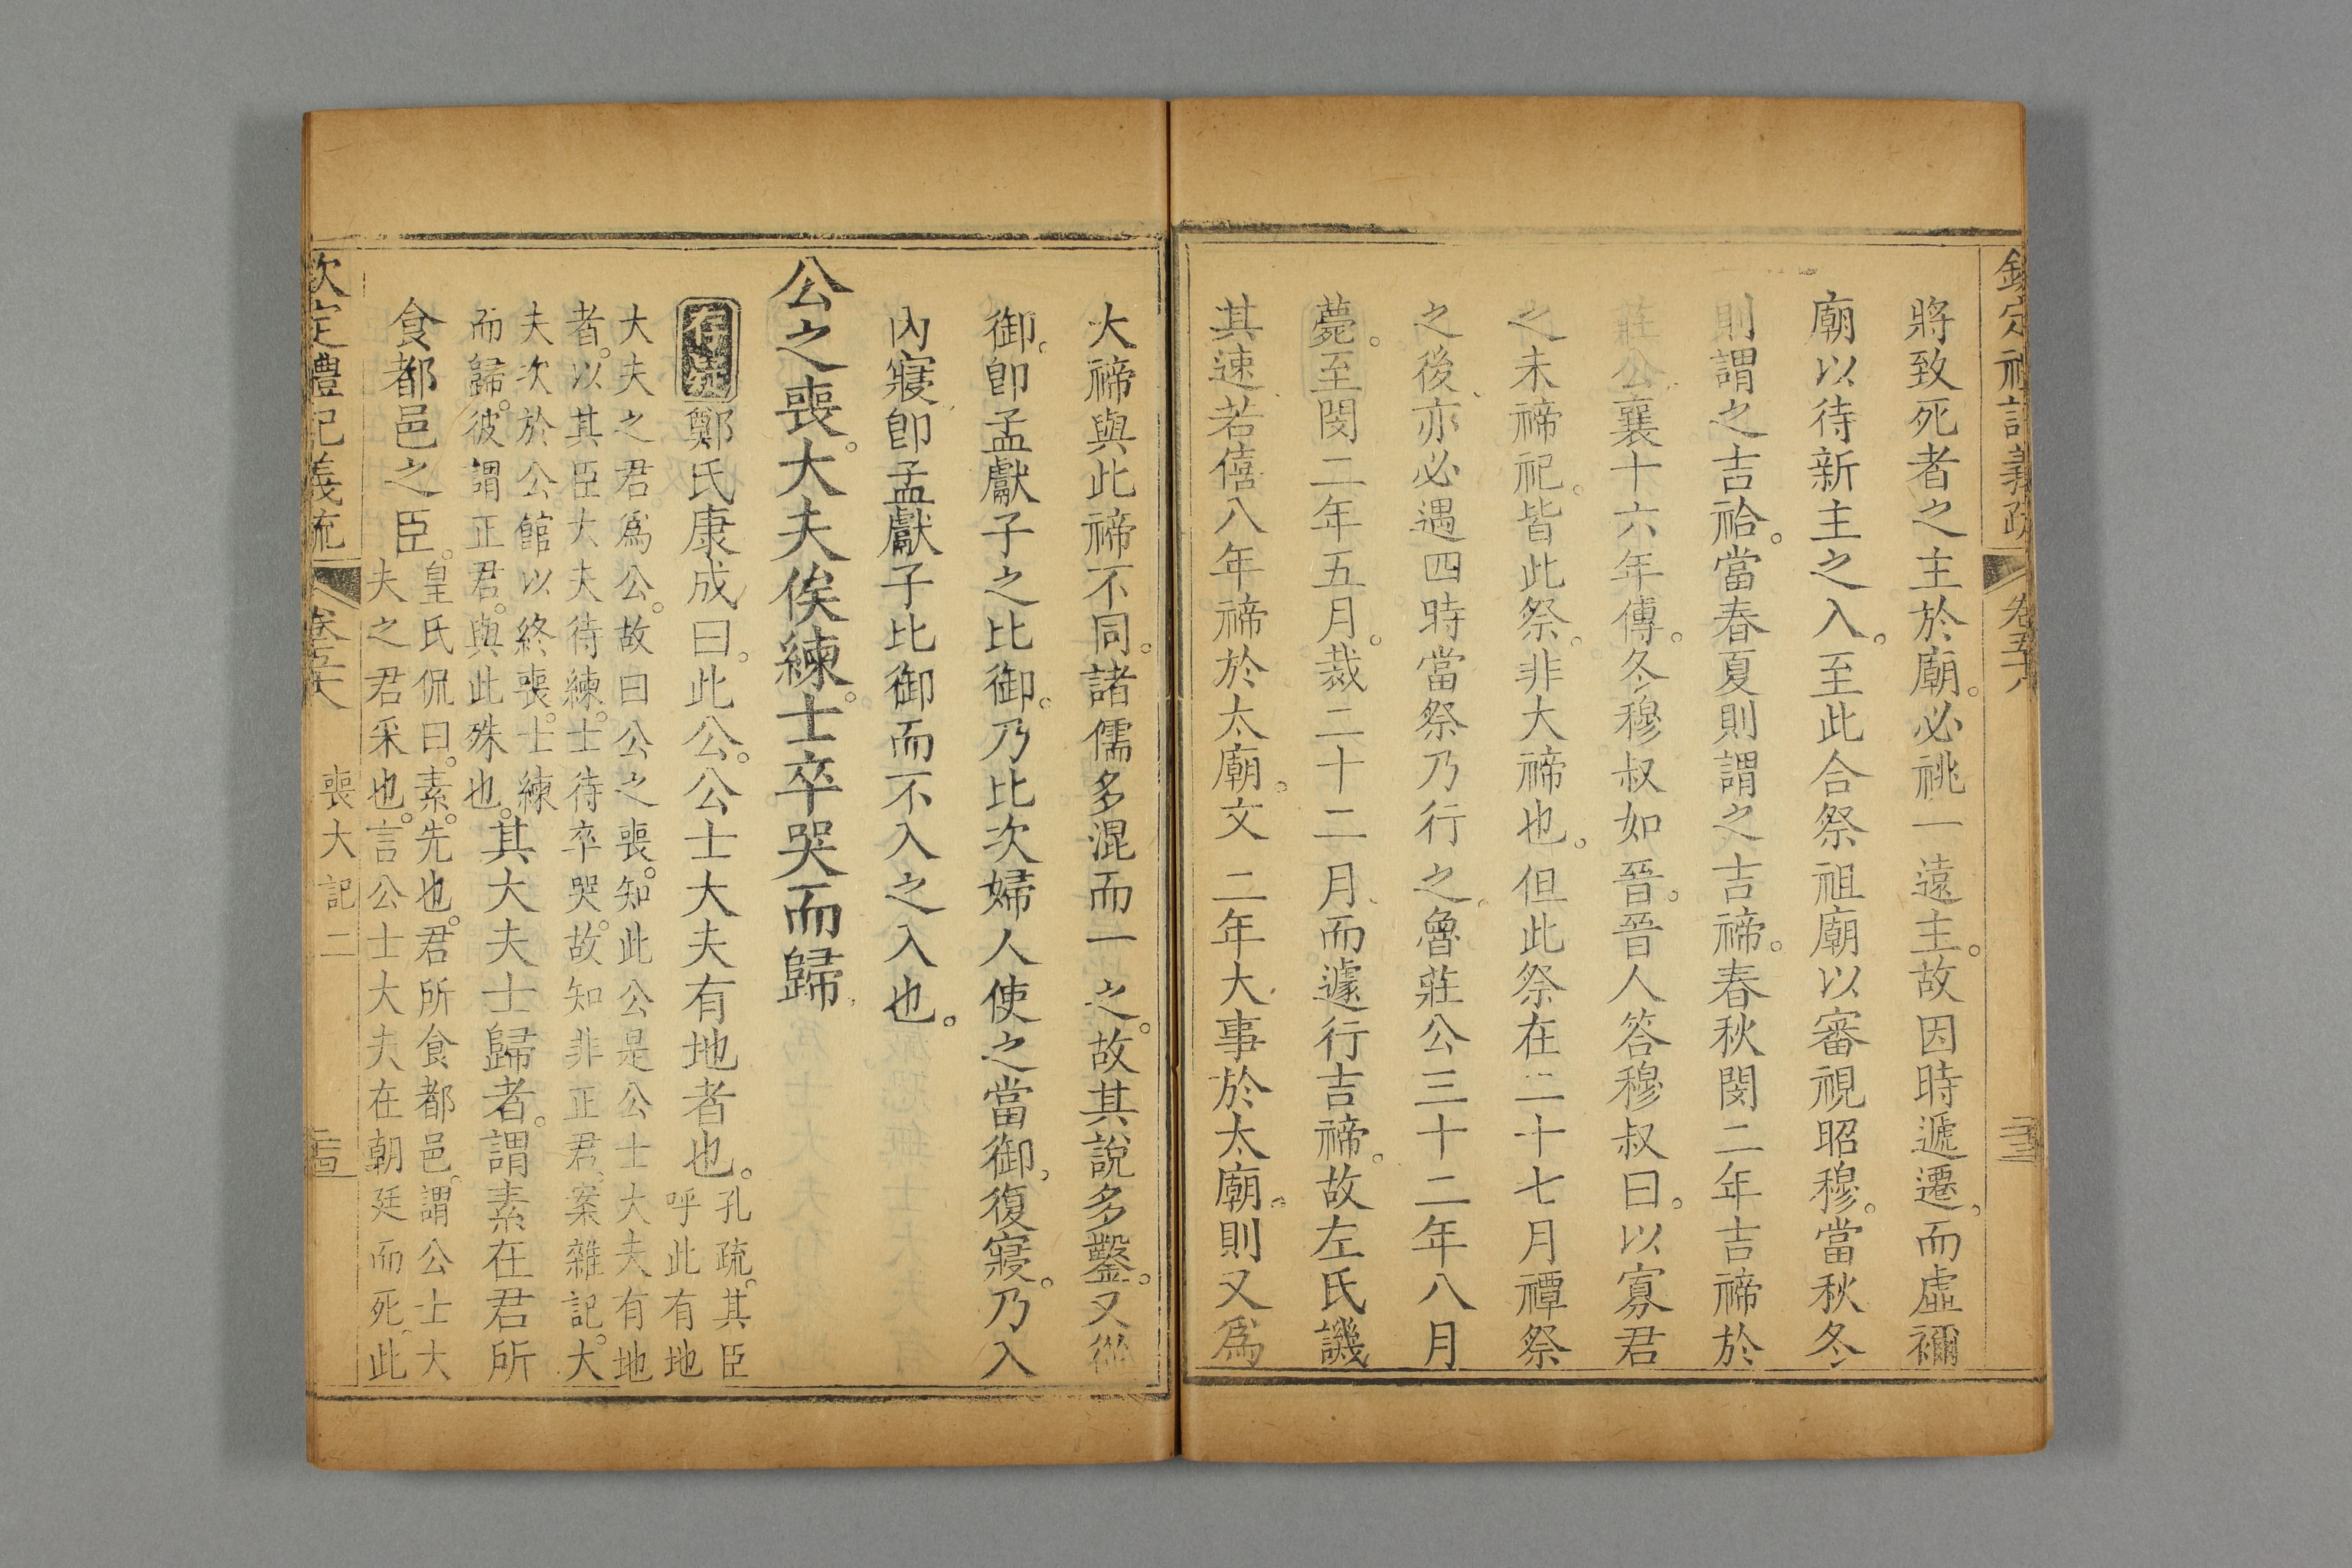 欽定禮記義疏 卷五十八
將致死者之主於廟。必祧一遠主。故因時遞遷、而虛禰
廟以待新主之入。至此合祭祖廟以審視昭穆。當秋冬
則謂之吉祫。當春夏則謂之吉禘。春秋閔二年吉禘於
莊公、襄十六年傳。冬穆叔如晉。晉人答穆叔曰。以寡君
之未禘祀。皆此祭。非大禘也。但此祭在二十七月禫祭
之後、亦必遇四時當祭乃行之、魯莊公三十二年八月
薨。至閔二年五月。裁二十二月、而遽行吉禘。故左氏譏
其速、若僖八年禘於太廟。文二年大事於太廟。則又爲
大禘與此禘不同。諸儒多混而一之。故其說多鑿。又從
御。卽孟獻子之比御。乃比次婦人使之當御、復寢。乃入
內寢、卽孟獻子比御而不入之入也。
公之喪。大夫俟練。士卒哭而歸、
存疑 鄭氏康成曰。此公。公士大夫有地者也。孔疏。其臣
呼此有地
大夫之君爲公。故曰公之喪。知此公是公士大夫有地
者。以其臣大夫待練。士待卒哭。故知非正君。案雜記。大
夫次於公館以終喪。士練
而歸。彼謂正君。與此殊也。其大夫士歸者。謂素在君所
食都邑之臣。皇氏侃曰。素。先也。君所食都邑、謂公士大
夫之君采也。言公士大夫在朝廷而死、此
欽定禮記義疏 卷五十八 喪大記二